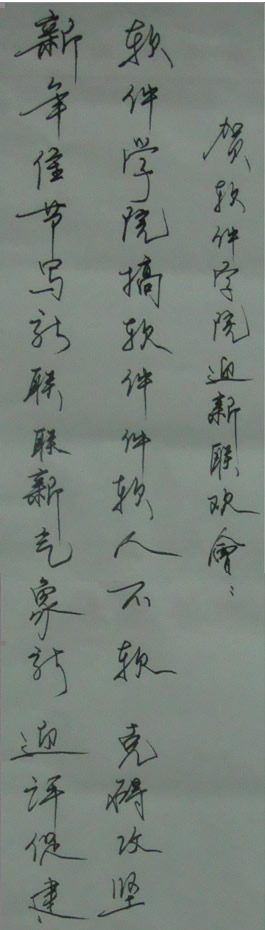 贺软件学院迎新联欢会:
软件学院搞软件件软人不软 克碍攻坚
新年佳节写新联联新气象新 迎评促建、